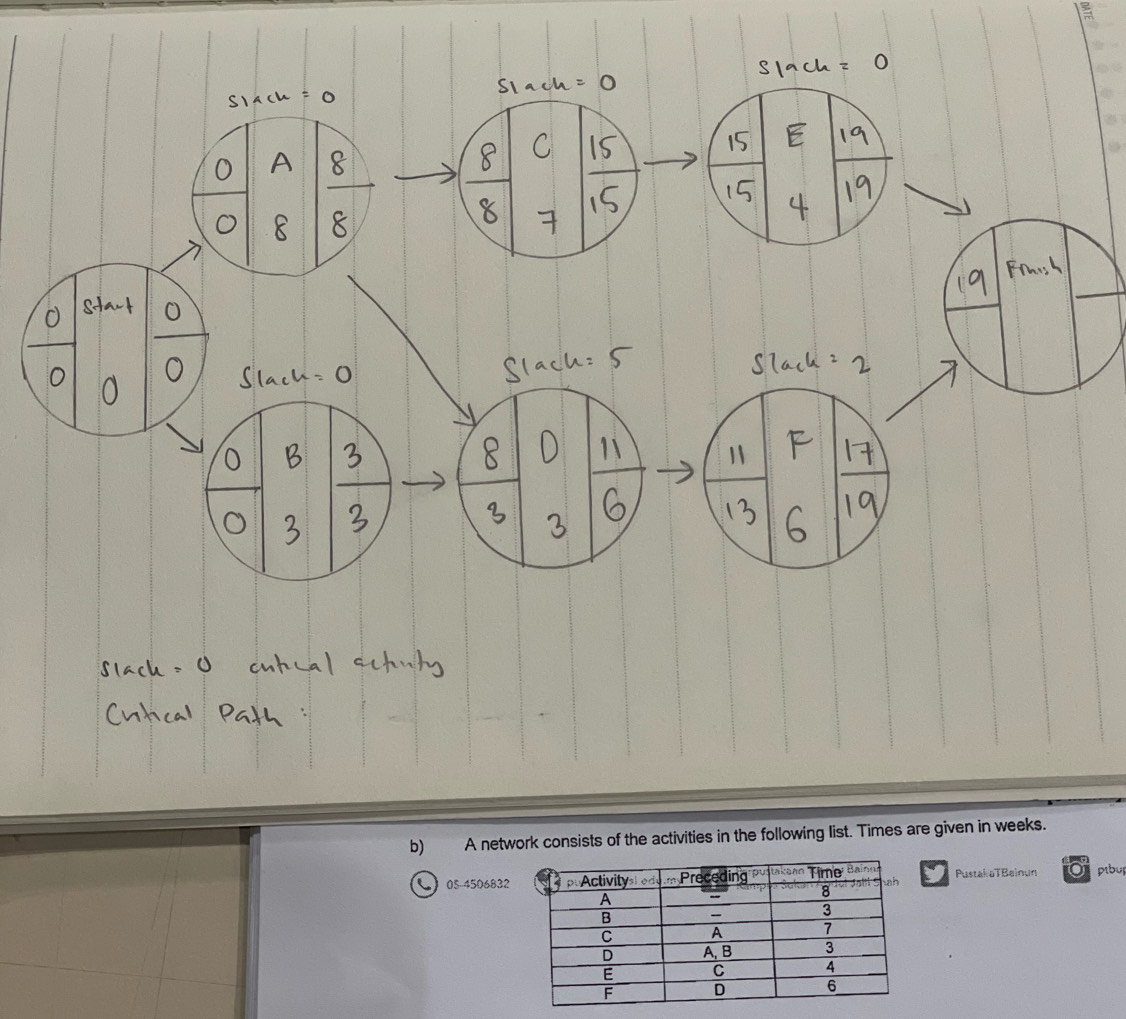 DATE
Slack = 0
Slack = 0
Slack = 0
0 A 8
0 8 8
8 C 15
8 7 15
15 E 19
15 4 19
0 Start 0
0 0 0
19 Finish
Slack = 0
Slack = 5
Slack = 2
0 B 3
0 3 3
8 D 11
3 3 6
11 F 17
13 6 19
Slack = 0 critical activity
Critical Path :
b) A network consists of the activities in the following list. Times are given in weeks.
05-4506832
PustakaTBainun
ptbup
Activity Preceding Time
A – 8
B – 3
C A 7
D A, B 3
E C 4
F D 6